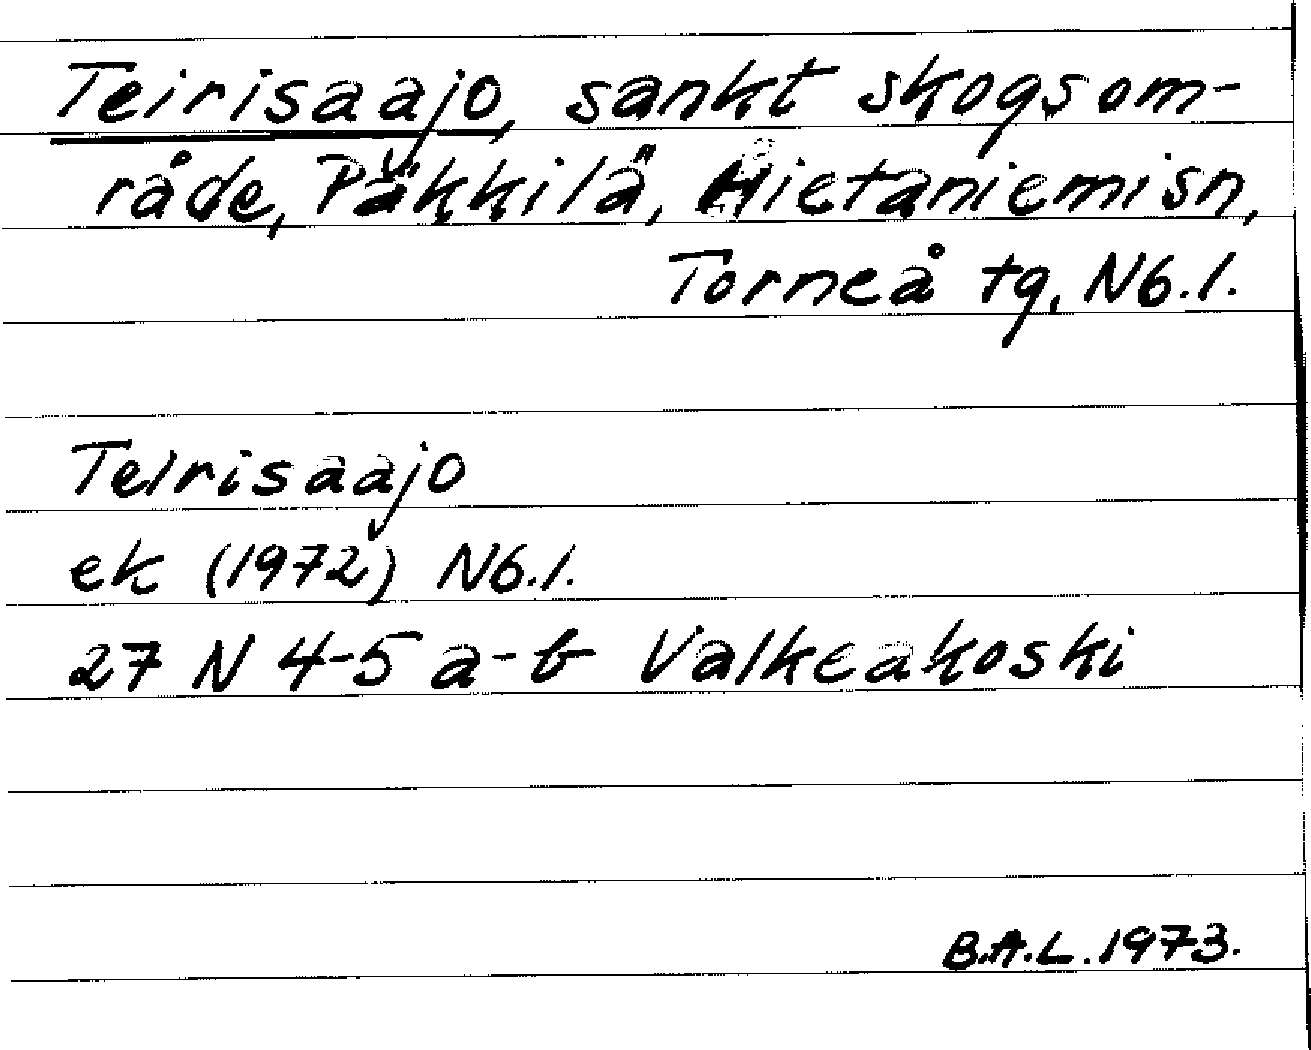 Teirisaajo, sankt skogsom-
råde, Päkkilä, Hietaniemi sn,
Torneå tg, Nb. l.
Teirisaajo
ek (1972) Nb. l.
27 N 4-5 a-b Valkeakoski
B.A.L. 1973.